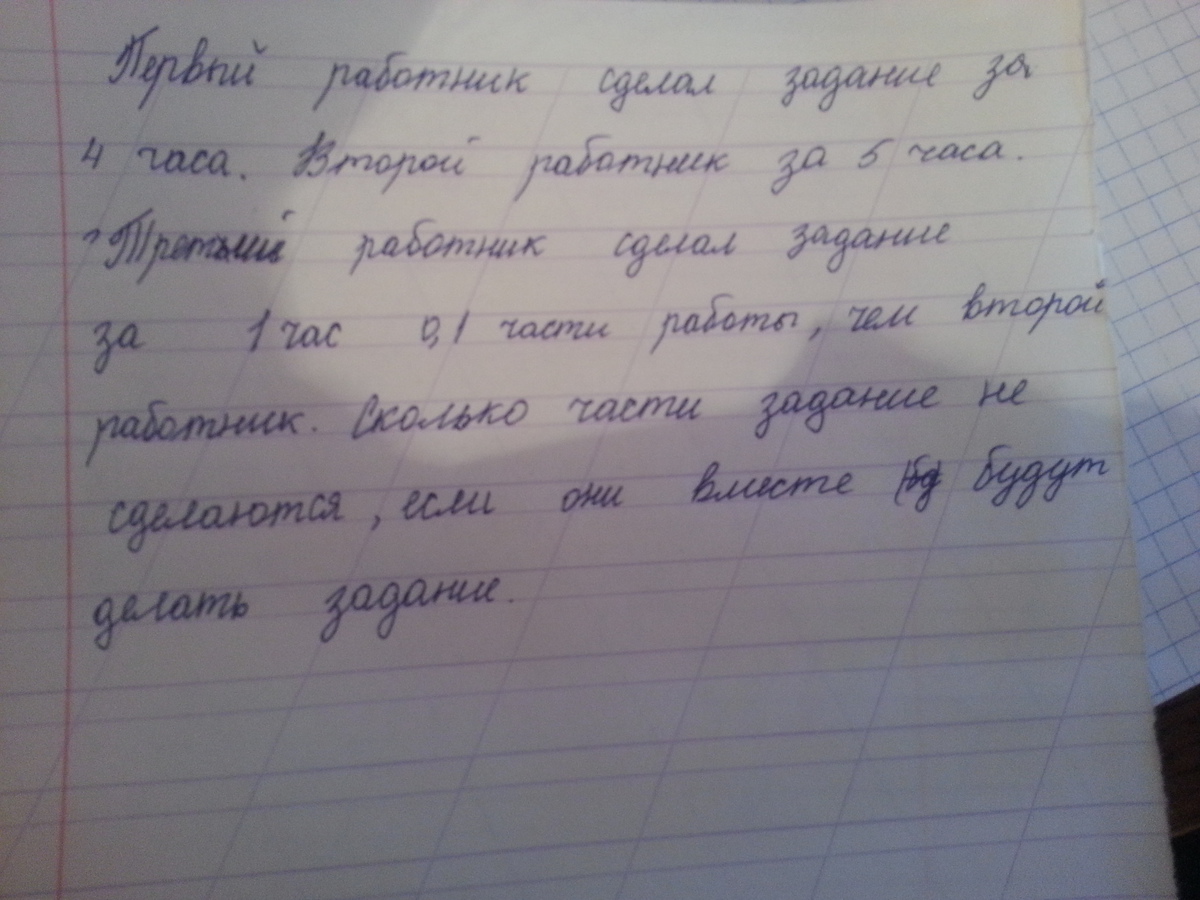 Первый работник сделал задание за
4 часа. Второй работник за 5 часа.
Третьий работник сделал задание
за 1 час 0,1 части работы, чем второй
работник. Сколько части задание не
сделаются, если они вместе будут
делать задание.